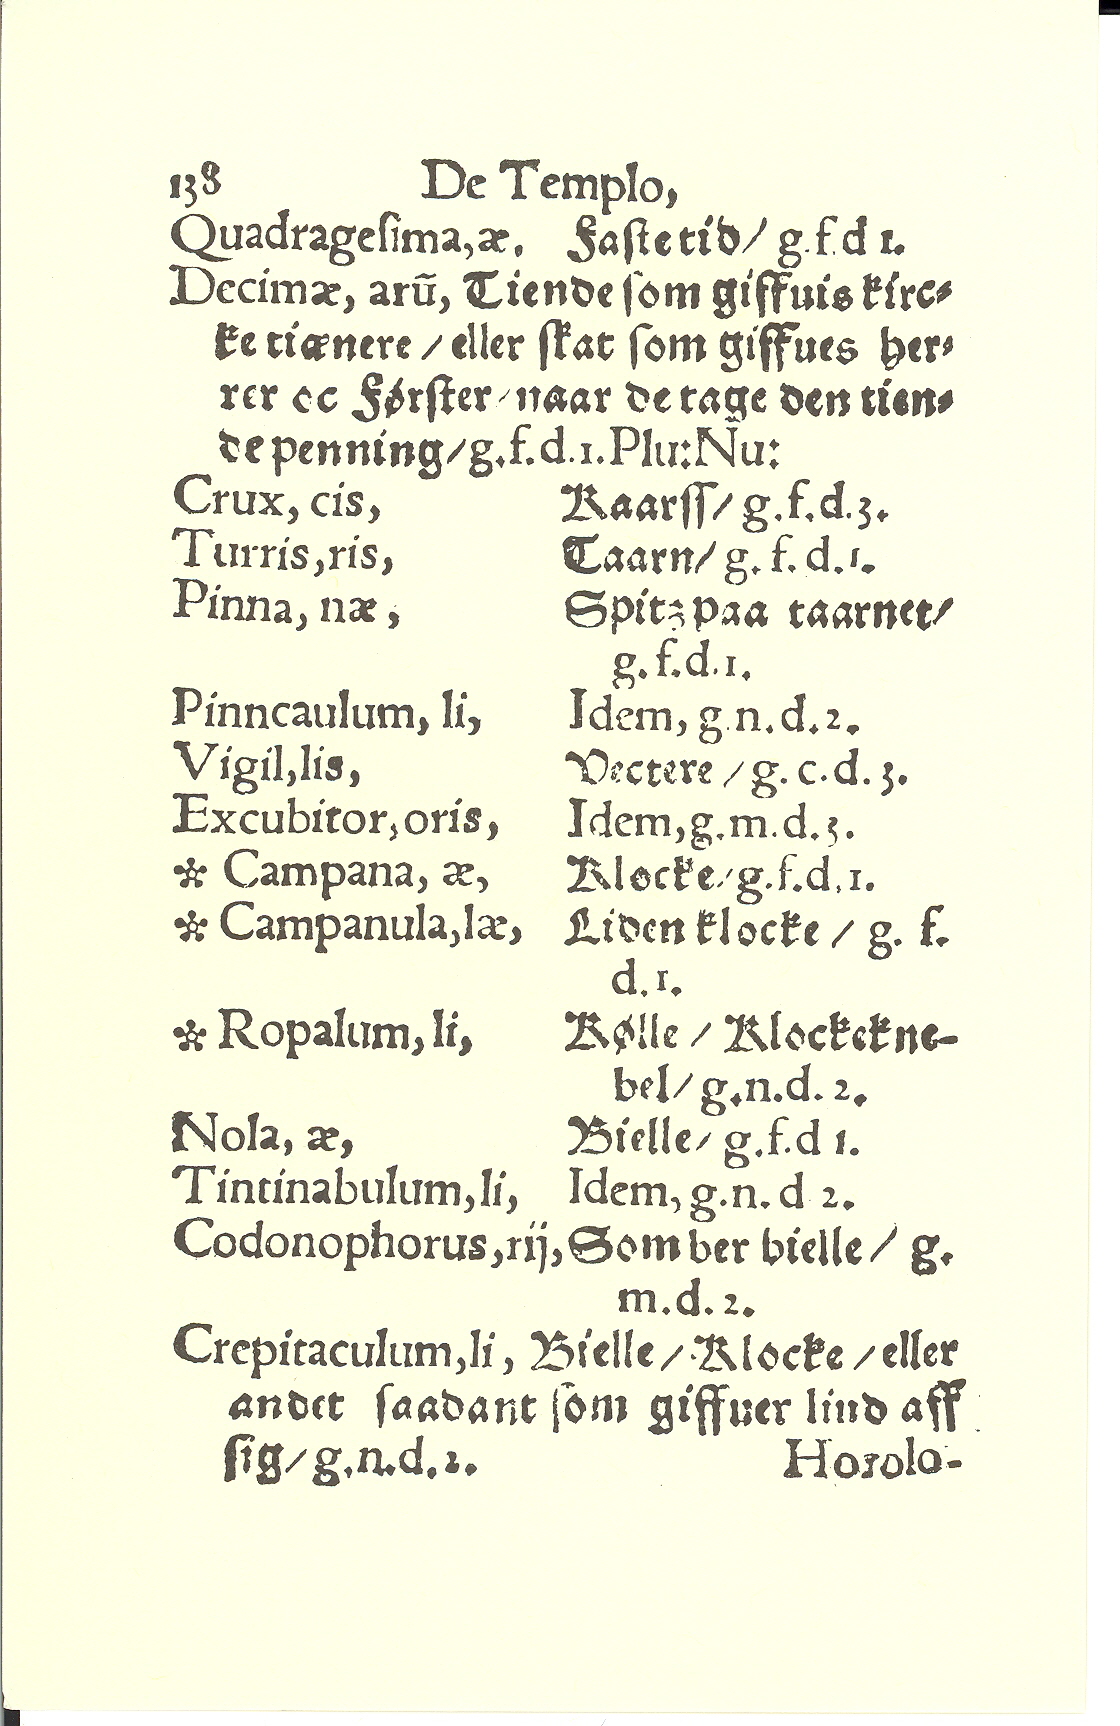 138 De Templo,
Quadrageſima,æ. Faſte tid/ g.f.d 1.
Decimæ, arũ, Tiende ſom giffuis kirc⸗
ke tiænere / eller ſkat ſom giffues her⸗
rer oc Førſter/ naar de tage den tien⸗
de penning/g.f.d.1.Plu:Ñu:
Crux, cis, Kaarſſ/ g.f.d.3.
Turris,ris, Taarn/ g.f.d.1.
Pinna, næ, Spitz paa taarnet/
g.f.d.1.
Pinncaulum, li, Idem, g.n.d.2.
Vigil,lis, Vectere / g.c.d.3.
Excubitor,oris, Idem,g.m.d.3.
* Campana, æ, Klocke/g.f.d.1.
* Campanula,læ, Liden klocke / g. f.
d.1.
* Ropalum,li, Kølle / Klockekne-
bel/ g.n.d.2.
Nola, æ, Bielle/ g.f.d 1.
Tintinabulum,li, Idem, g.n. d 2.
Codonophorus,rij, Som ber bielle / g.
m.d.2.
Crepitaculum,li, Bielle / Klocke / eller
andet ſaadant ſom giffuer liud aff
ſig/ g.n.d.2. Horolo-